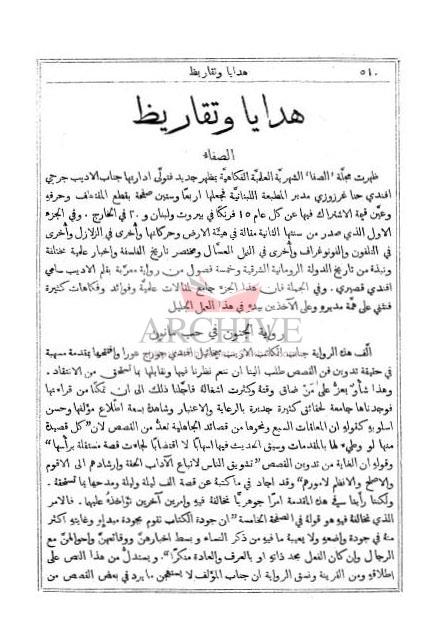 هدايا وتقاريظ ٥١٠
هدايا وتقاريظ
الصفاء
ظهرت مجلة "الصفا" الشهرية العلمية الفكاهية بمظهر جديد فتولى ادارتها جناب الاديب جرجي
افندي حنا غرزوزي مدير المطبعة اللبنانية فجعلها اربعا وستين صفحة بقطع المقتطف وحرفه
وعين قيمة الاشتراك فيها عن كل عام ١٥ فرنكا في بيروت ولبنان و ٢٠ في الخارج. وفي الجزء
الاول الذي صدر من سنتها الثانية مقالة في هيئة الارض وحركاتها وأخرى في الزلازل وأخرى
في التلفون والفونوغراف وأخرى في النيل العسال ومختصر تاريخ الفلسفة واخبار علمية مختلفة
ونبذة من تاريخ الدولة الرومانية الشرقية وخمسة فصول من رواية معربة بقلم الاديب سامي
افندي قصيري. وفي الجملة فان هذا الجزء جامع لمقالات علمية وفوائد وفكاهات كثيرة
فنثني على همة مديرو وعلى الآخذين بيدو في هذا العمل الجليل
ARCHIVE
رواية الجنون في حب مانون
ألف هذه الرواية جناب الكاتب الاديب ميخائيل افندي جورج عورا وافتتحها بمقدمة مسهبة
في حقيقة تدوين فن القصص طلب الينا ان ننعم نظرنا فيها ونقابلها بما تستحق من الانتقاد.
وهذا شأو يعز على من ضاق وقته وكثرت اشغاله فاجلنا ذلك الى ان تمكنا من قراءتها
فوجدناها جامعة لحقائق كثيرة جديرة بالرعاية والاعتبار وشاهدة بسعة اطلاع مؤلفها وحسن
اسلوبه كقوله ان المعلقات السبع ونحوها من قصائد الجاهلية تعد من القصص لان "كل قصيدة
منها لو وطئ لها بالمقدمات وسيق الحديث فيها اسهابا لا اقتضابا لجاءت قصة مستقلة برأسها"
وقوله ان الغاية من تدوين القصص "تشويق الناس لاتباع الآداب الحقة وإرشادهم الى الاقوم
والاصلح والانظم لامورهم" وقد اجاد في ما كتبه عن قصة الف ليلة وليلة ومدحها بما تستحقه.
ولكننا رأينا في هذه المقدمة امرا جوهريا نخالفه فيه وامرين آخرين نؤاخذه عليهما. فالامر
الذي نخالفه فيه هو قوله في الصفحة الخامسة "ان جودة الكتاب تقوم بجودة مبداه وغايته اكثر
منه في جودة واضعه ولا يعيبه ما فيه من ذكر النساء و بسط اخبارهن ووقائعهن واحوالهن مع
الرجال وإن كان الفعل بحد ذاته او بالعرف والعادة منكرا". ويستدل من هذا النص على
اطلاقه ومن القرينة ونسق الرواية ان جناب المؤلف لا يستهجن ما يرد في بعض القصص من